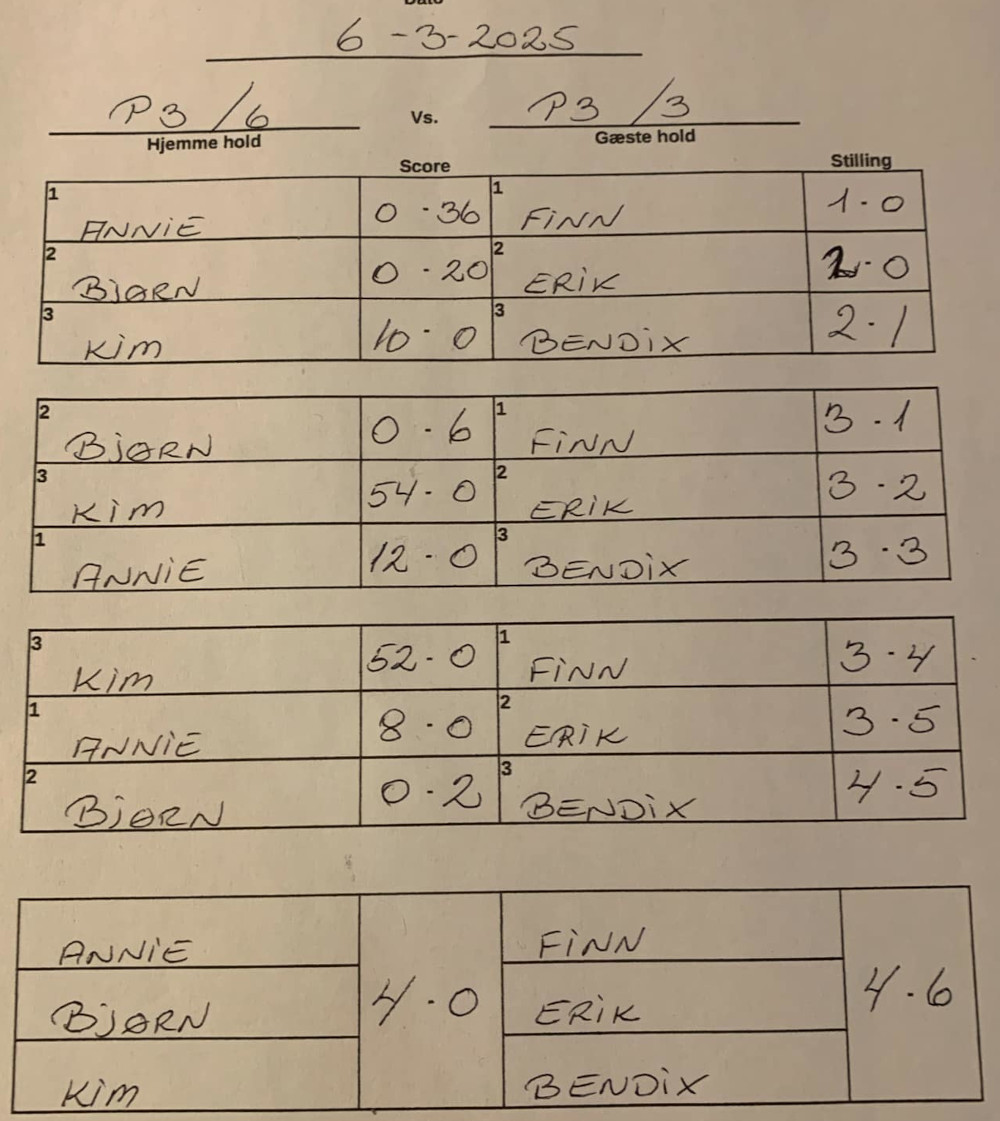 Dato
6-3-2025
P3/6 Vs. P3/3
Hjemme hold Gæste hold
Score Stilling
1 ANNiE 0·36 1 FiNN 1·0
2 BjØRN 0·20 2 ERiK 2·0
3 KiM 10·0 3 BENDiX 2·1
2 BjØRN 0·6 1 FiNN 3·1
3 KiM 54·0 2 ERiK 3·2
1 ANNiE 12·0 3 BENDiX 3·3
3 KiM 52·0 1 FiNN 3·4
1 ANNiE 8·0 2 ERiK 3·5
2 BjØRN 0·2 3 BENDiX 4·5
ANNiE FiNN
BjØRN 4·0 ERiK 4·6
KiM BENDiX